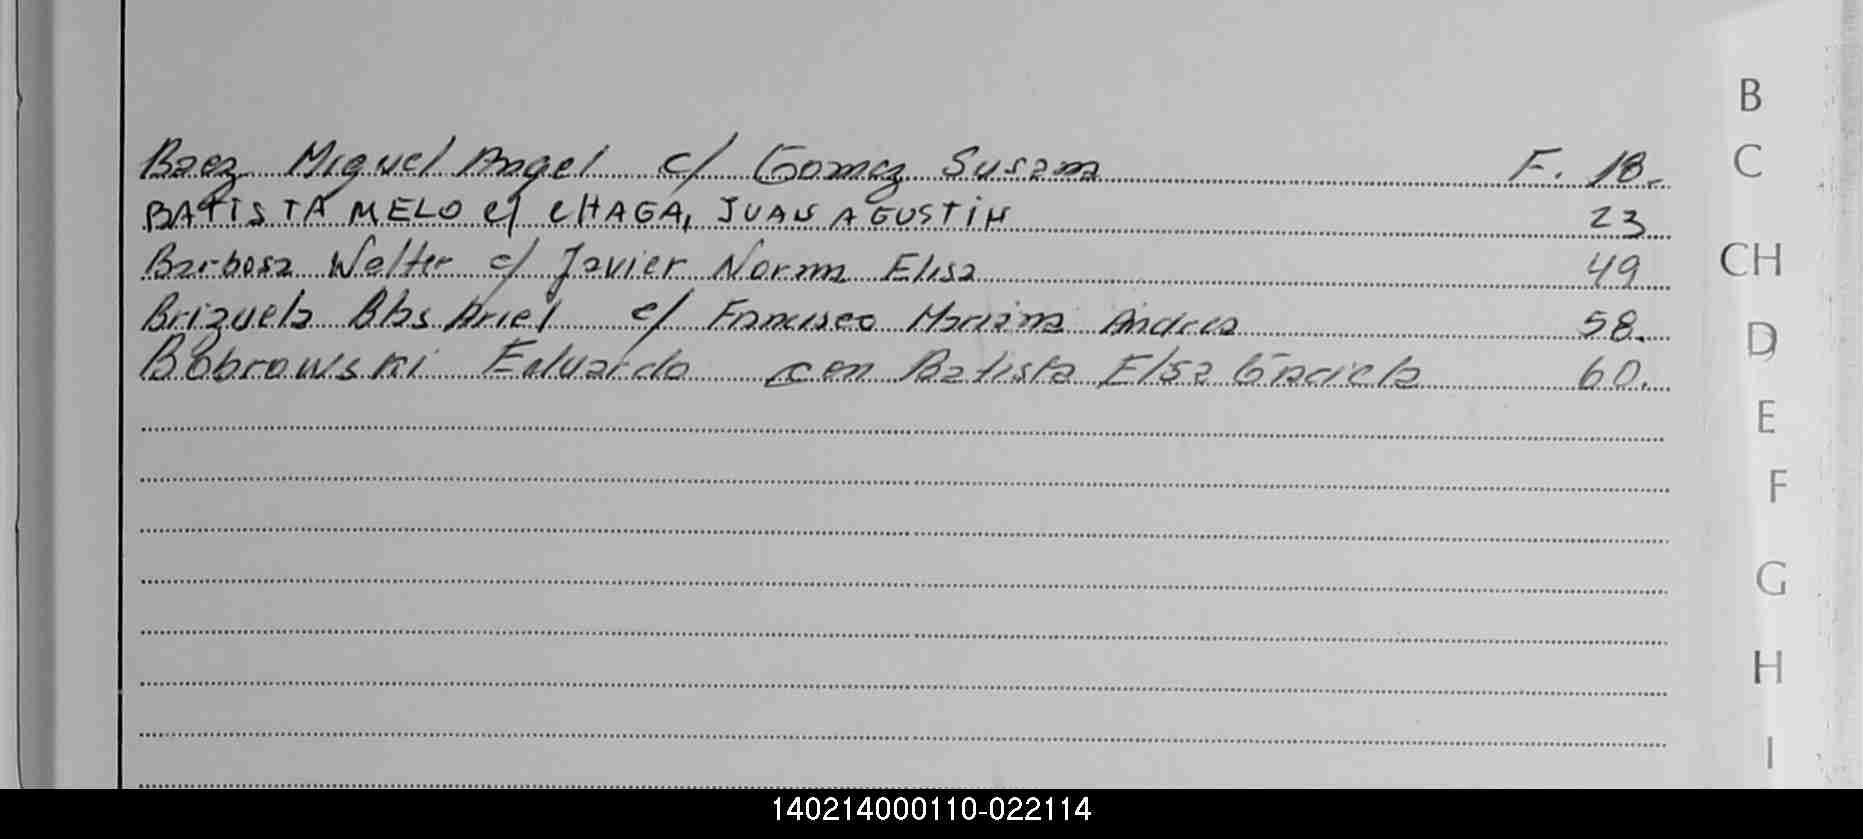 B
Baez Miguel Angel c/ Gomez Susana F. 18.
C
BATISTA MELO c/ CHAGA, JUAN AGUSTIN 23
Barbosa Walter c/ Javier Norma Elisa 49
CH
Brizuela Blas Ariel c/ Francisco Mariana Andrea 58.
D
Bobrowski Eduardo con Batista Elsa Graciela 60.
E
F
G
H
I
140214000110-022114